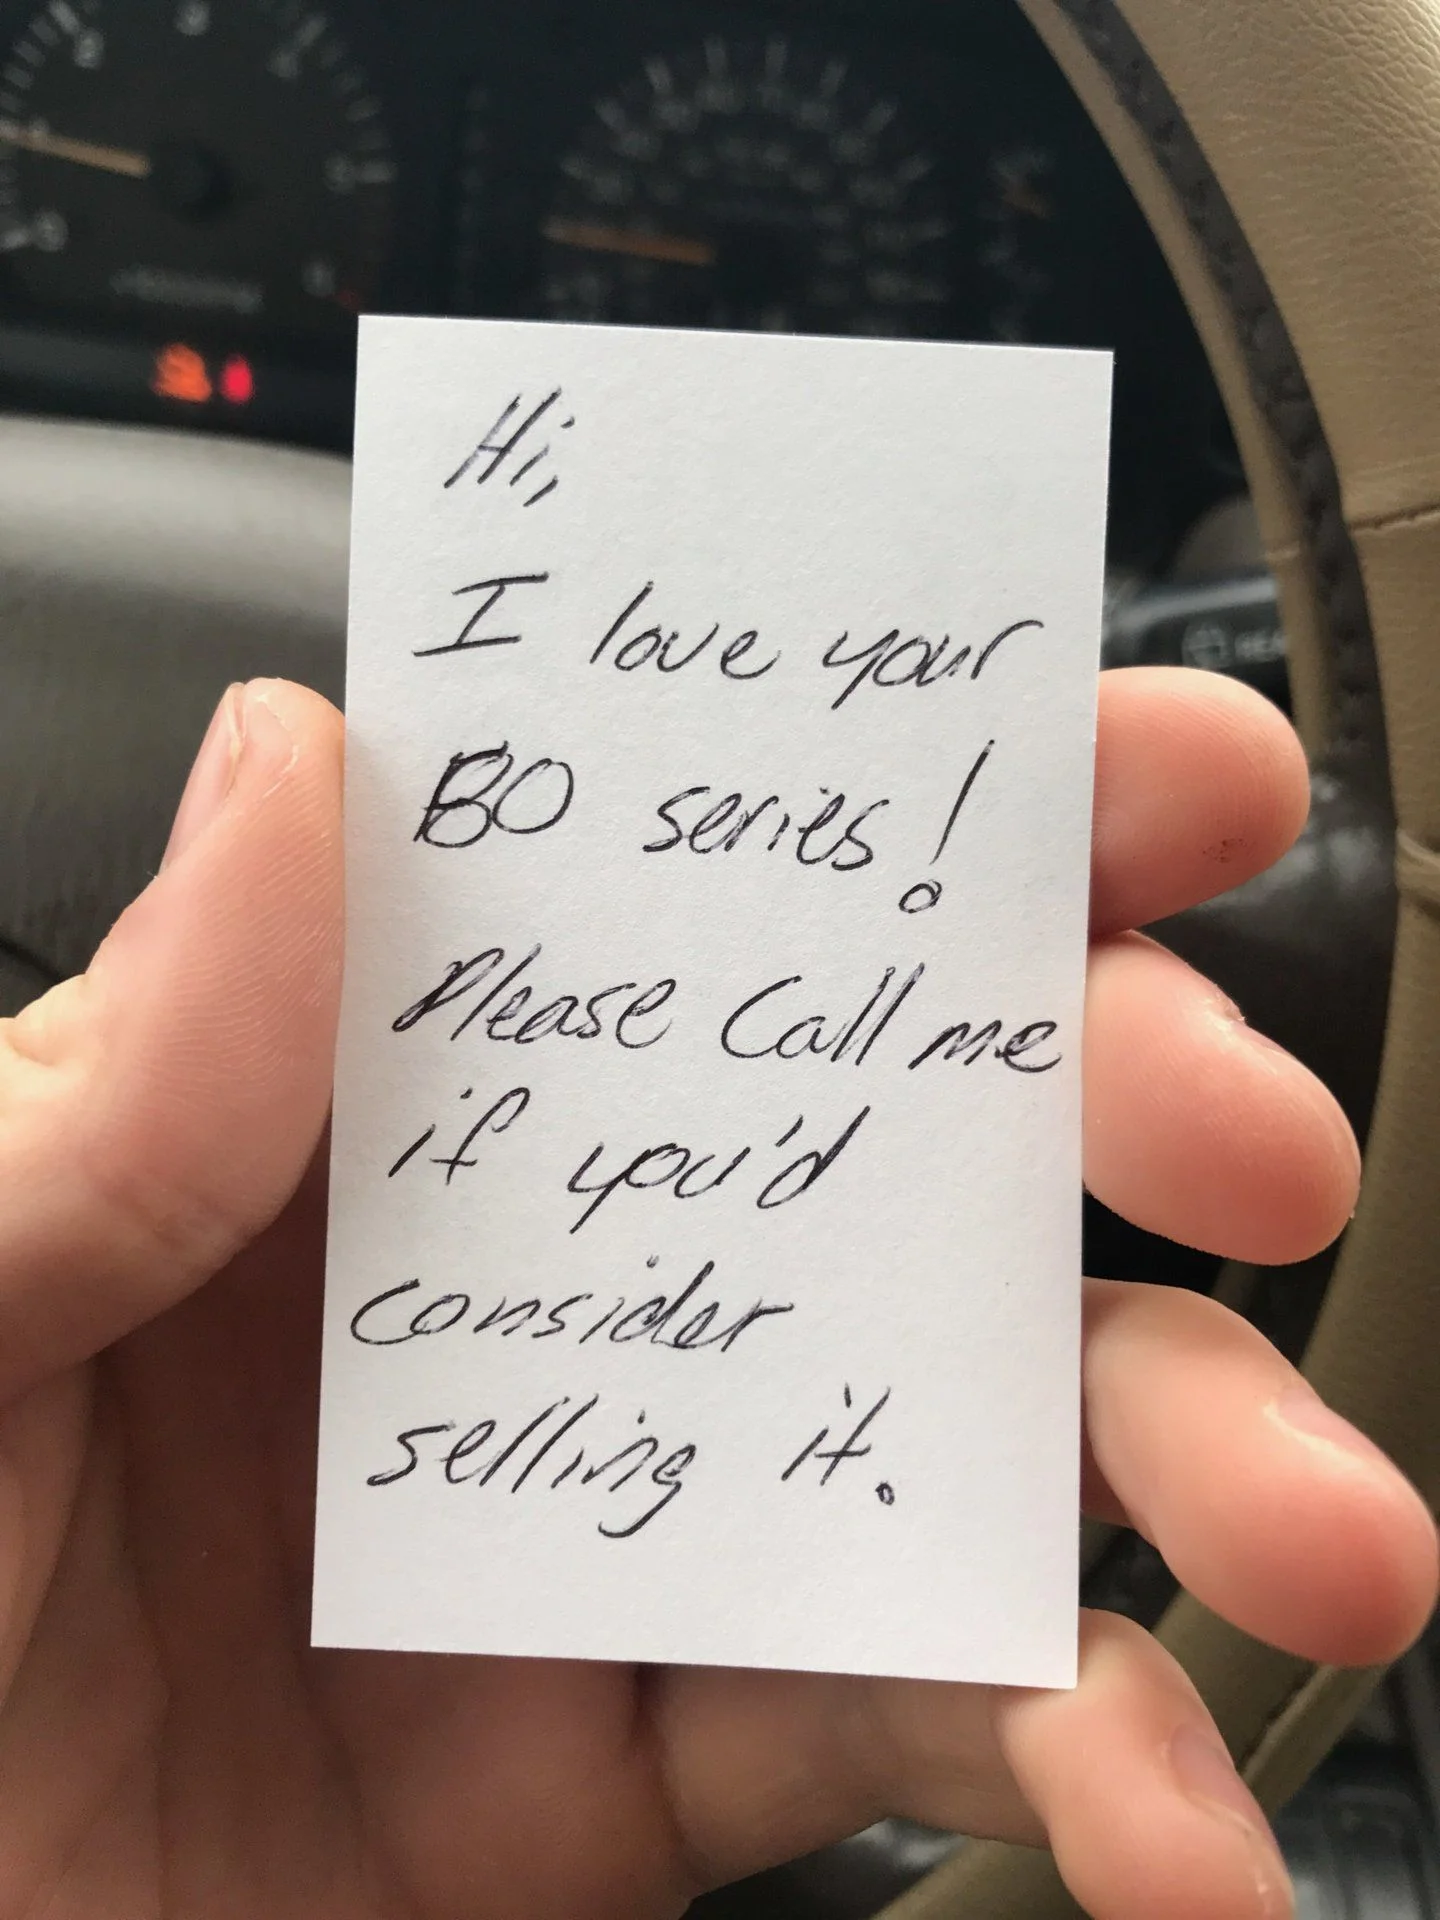 Hi,
I love your
80 series!
Please call me
if you'd
consider
selling it.